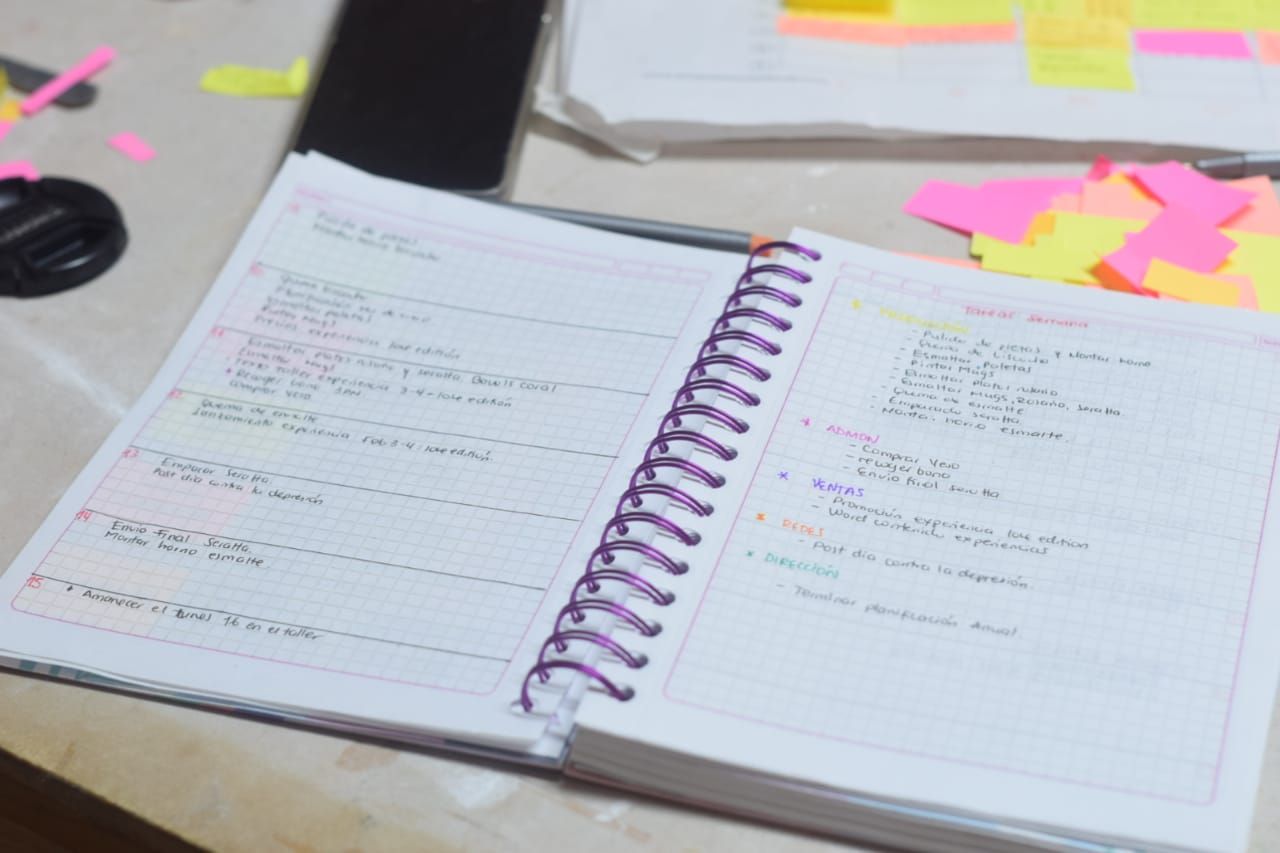 9
Pulida de piezas
Montar horno bizcocho
10
Quema bizcocho
Esmaltar paletas
Pintar Mugs
Precios experiencia love edittion
11
Esmaltar platos rosario y seratta. Bowls coral
Esmaltar Mugs
Texto taller experiencia 3-4-love edittion
Recoger bono 3PM
comprar yeso
12
Quema de esmalte
Lanzamiento experiencia Feb 3-4: love edittion.
13
Empacar Seratta.
Post día contra la depresión
14
Envío final Seratta.
Montar horno esmalte.
15
* Amanecer el lunes 16 en el taller
Tareas semana
* PRODUCCIÓN
- Pulida de piezas y Montar horno
- Quema de bizcocho
- Esmaltar Paletas
- Pintar Mugs
- Esmaltar platos rosario
- Esmaltar Mugs, Rosario, seratta.
- Quema de esmalte
- Empacado seratta.
- Montar horno esmalte.
* ADMON
- Comprar Yeso
- recoger bono
- Envío final seratta
* VENTAS
- Promoción experiencia love edition
- Word contenido experiencias
* REDES
- Post día contra la depresión.
* DIRECCIÓN
- Terminar planificación anual